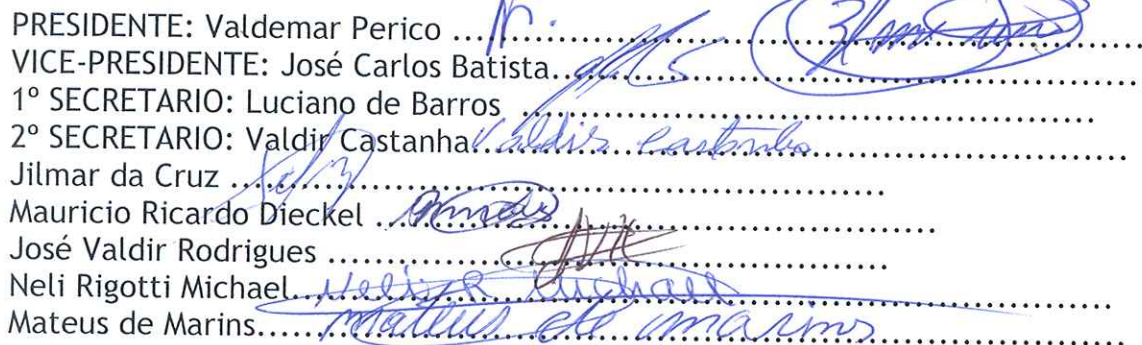 PRESIDENTE: Valdemar Perico ...................................................
VICE-PRESIDENTE: José Carlos Batista..................................................
1º SECRETARIO: Luciano de Barros ..................................................
2º SECRETARIO: Valdir Castanha Valdir Castanha
Jilmar da Cruz ..................................................
Mauricio Ricardo Dieckel ..................................................
José Valdir Rodrigues ..................................................
Neli Rigotti Michael Neli R Michael
Mateus de Marins Mateus de marins